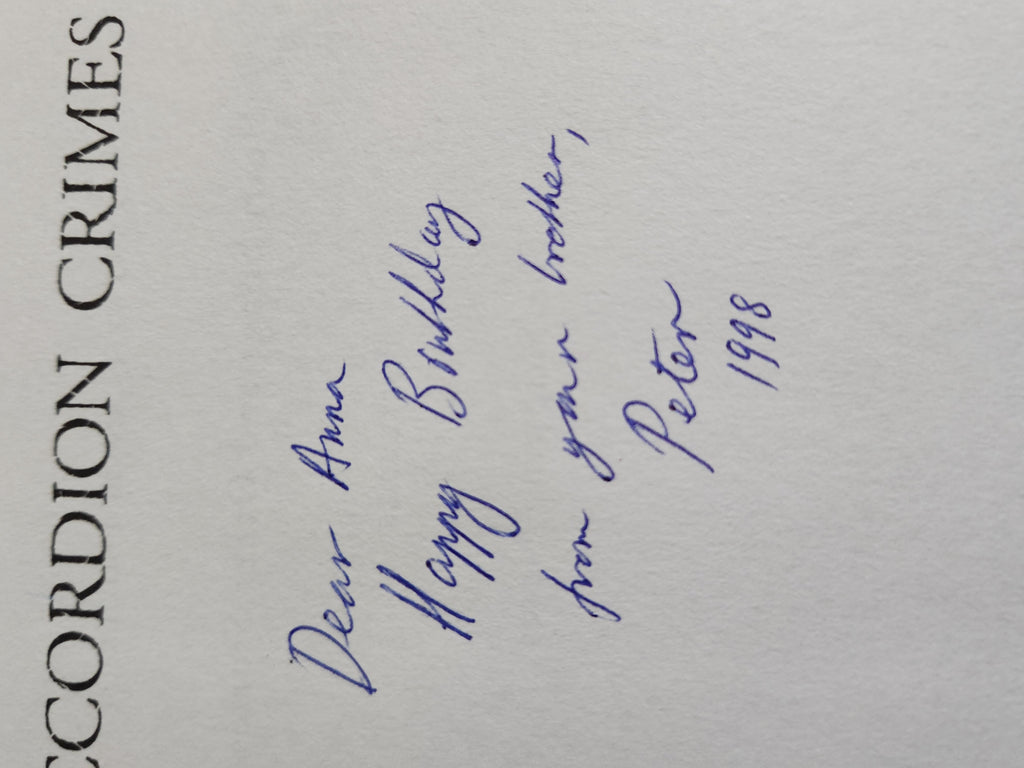 CCORDION CRIMES
Dear Anna
Happy Birthday
from your brother,
Peter
1998